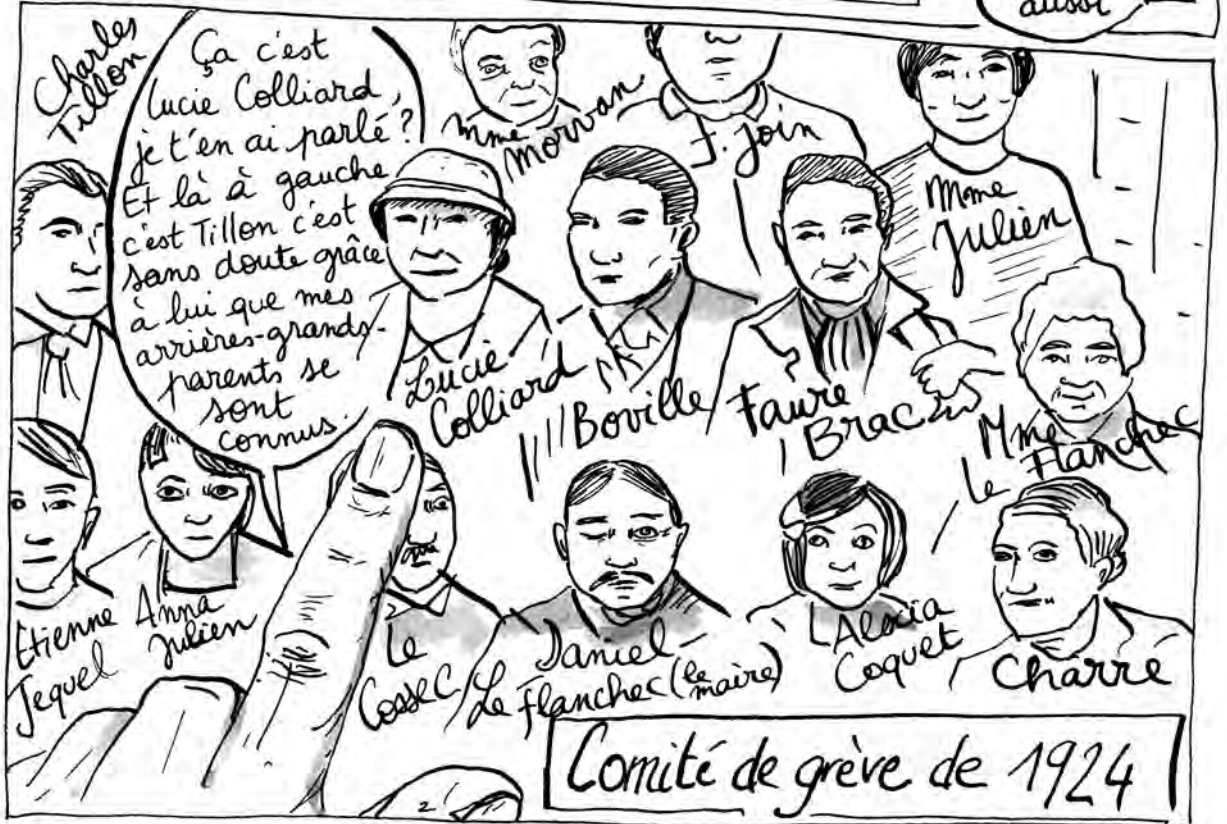 aussi
Charles
Tillon
Ça c'est
Lucie Colliard,
je t'en ai parlé ?
Et là à gauche
c'est Tillon c'est
sans doute grâce
à lui que mes
arrières-grands-
parents se
sont
connus.
Mme
Morvan
J. Join
Mme
Julien
Lucie
Colliard
Boville
Faure
Brac
Mme
Le Flanchec
Etienne
Jequel
Anna
Julien
Le
Cossec
Daniel
Le Flanchec (le maire)
Alexia
Coquet
Charre
Comité de grève de 1924